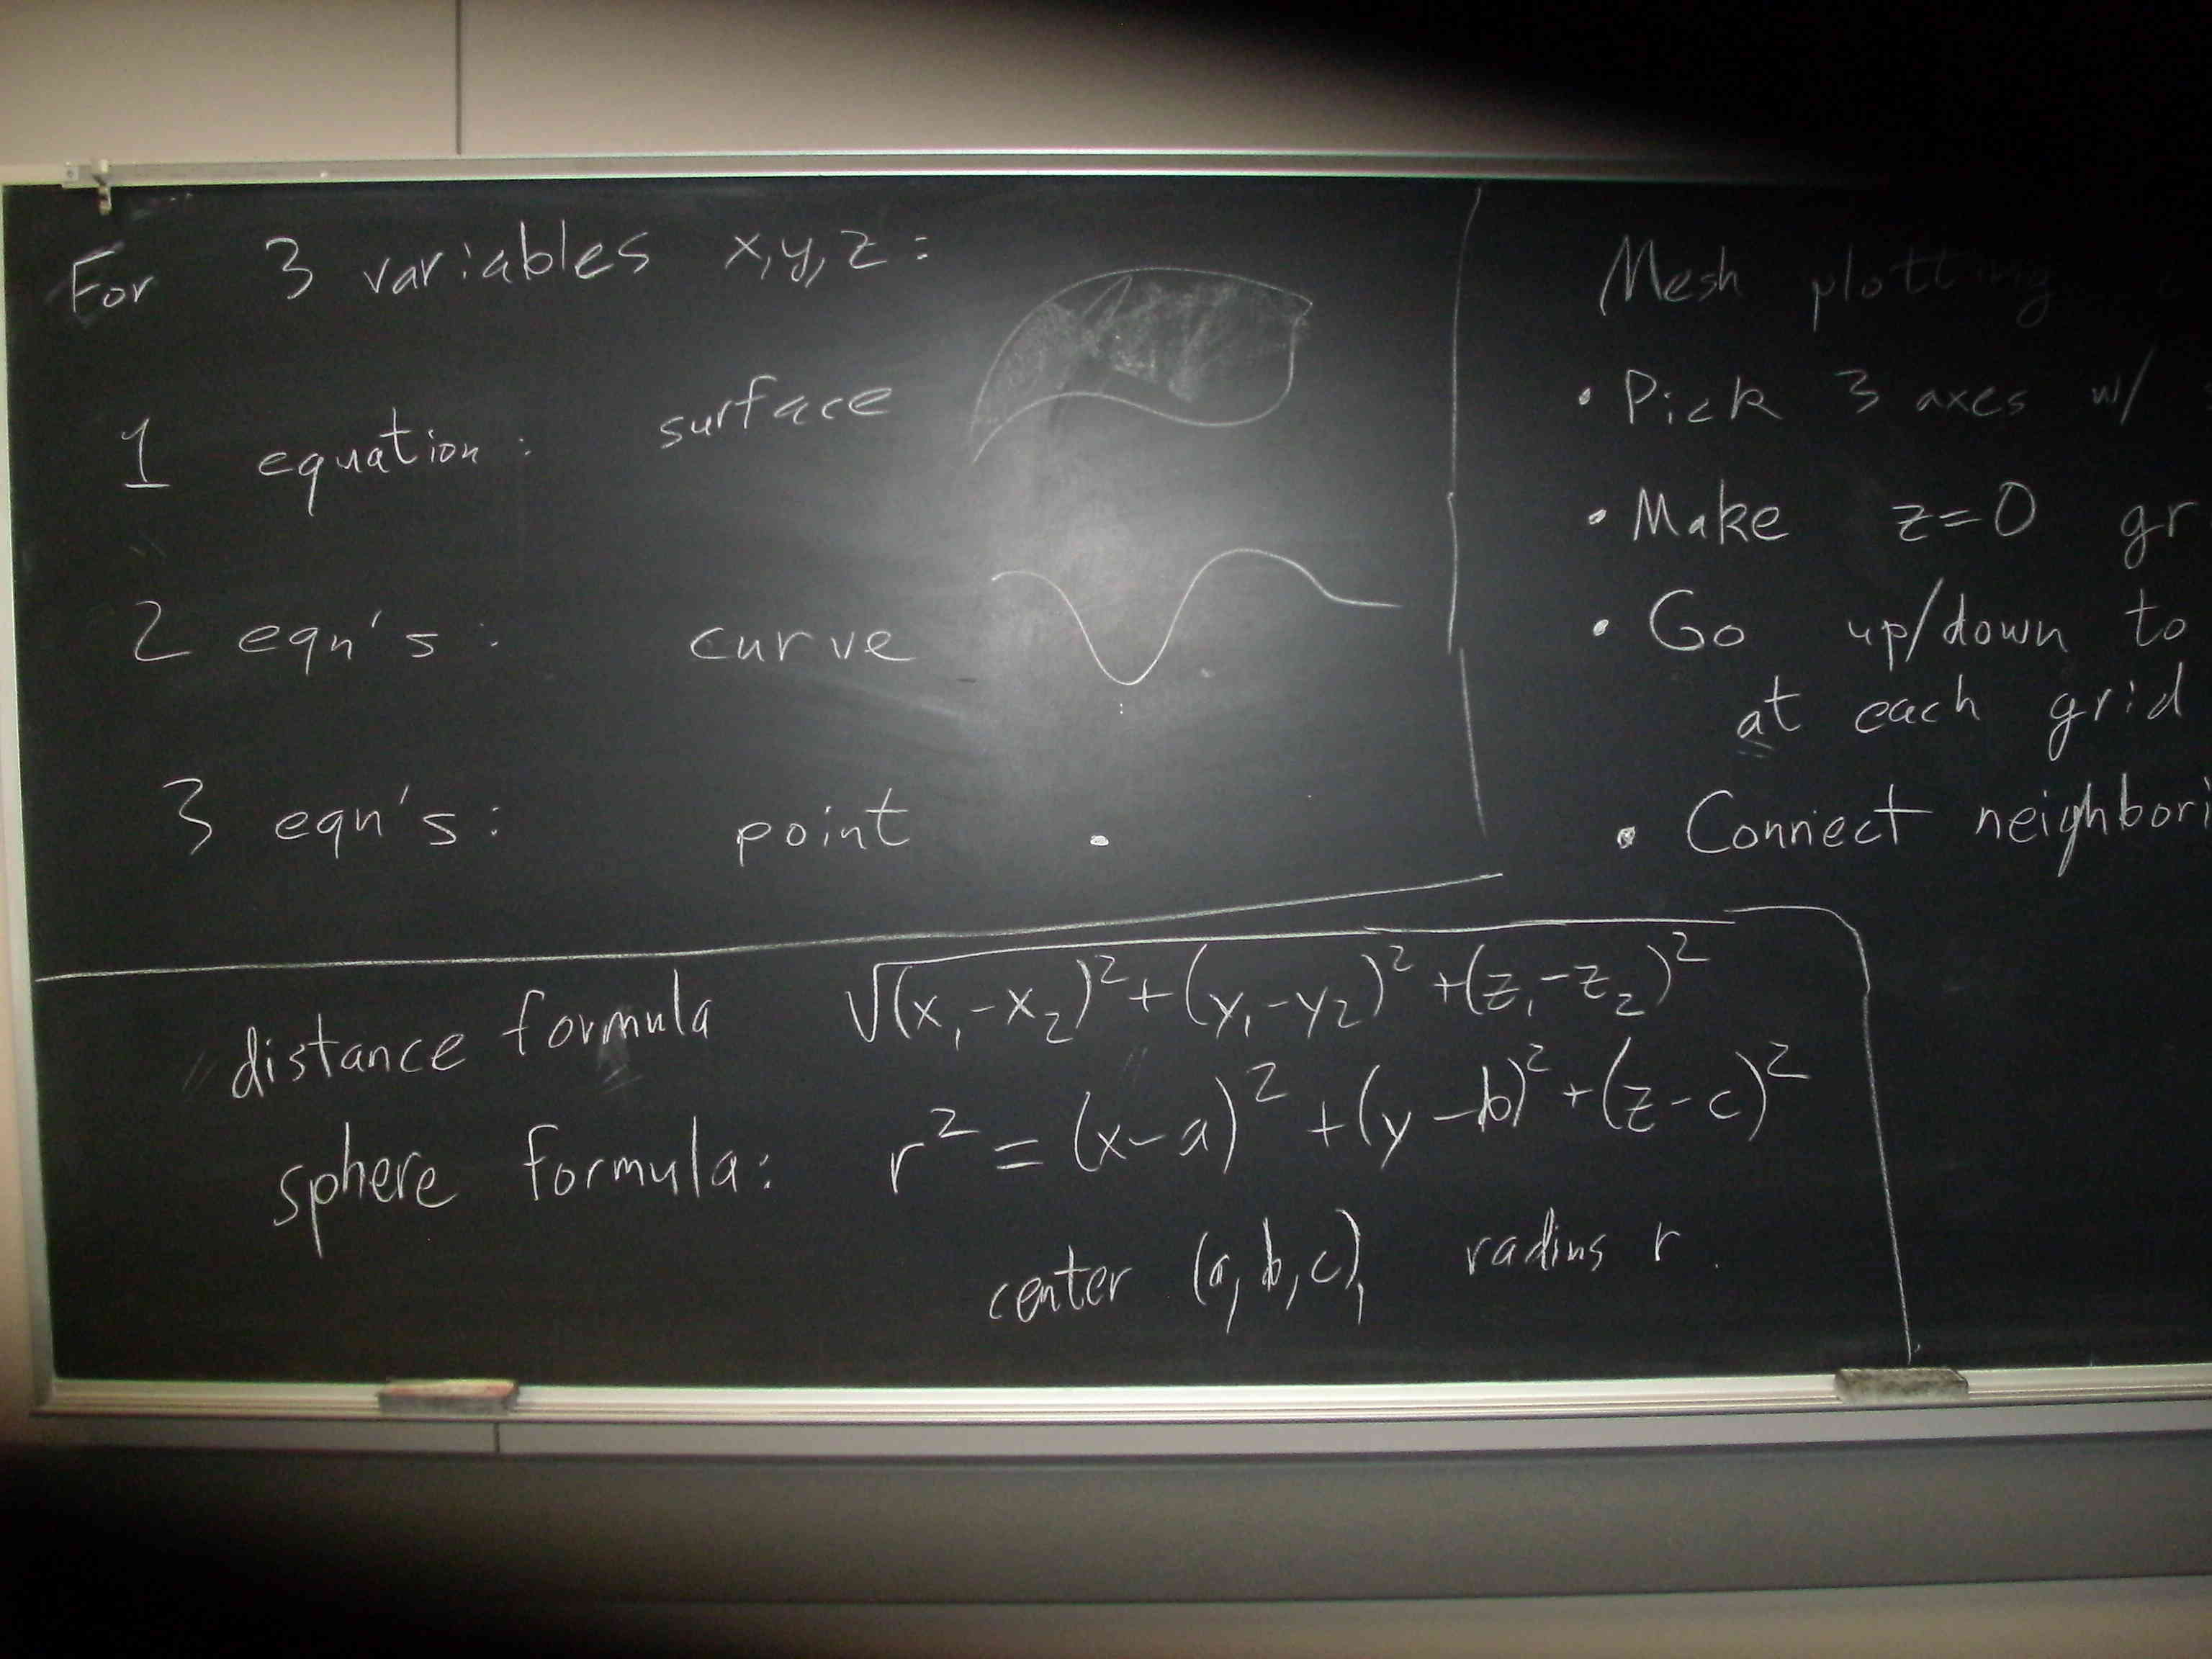 For 3 variables x,y,z:
1 equation: surface
2 eqn's: curve
3 eqn's: point
Mesh plotting
• Pick 3 axes w/
• Make z=0 gr
• Go up/down to
at each grid
• Connect neighbori
distance formula √(x₁-x₂)²+(y₁-y₂)²+(z₁-z₂)²
sphere formula: r²=(x-a)²+(y-b)²+(z-c)²
center (a,b,c), radius r.